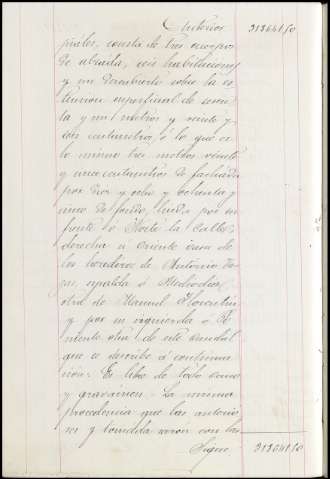 Anterior 31364150
piales, consta de tres cuerpos
de alzada, seis habitaciones
y un descubierto sobre la es
tension superficial de sesen
ta y un metros y veinte y
dos centimetros, ó lo que es
lo mismo tres metros veinte
y cinco centimetros de fachada
por diez y ocho y ochenta y
cinco de fondo, linda por su
frente ó Norte la Calle;
derecha ú Oriente casa de
los herederos de Antonio
espalda ó Mediodia
otra de Manuel Florentin
y por su izquierda ó Po
niente otra de este caudal
que se describe á continua
cion: Es libre de todo censo
y gravamen. La misma
procedencia que las anterio
res y la misma con las
Sigue 31364150